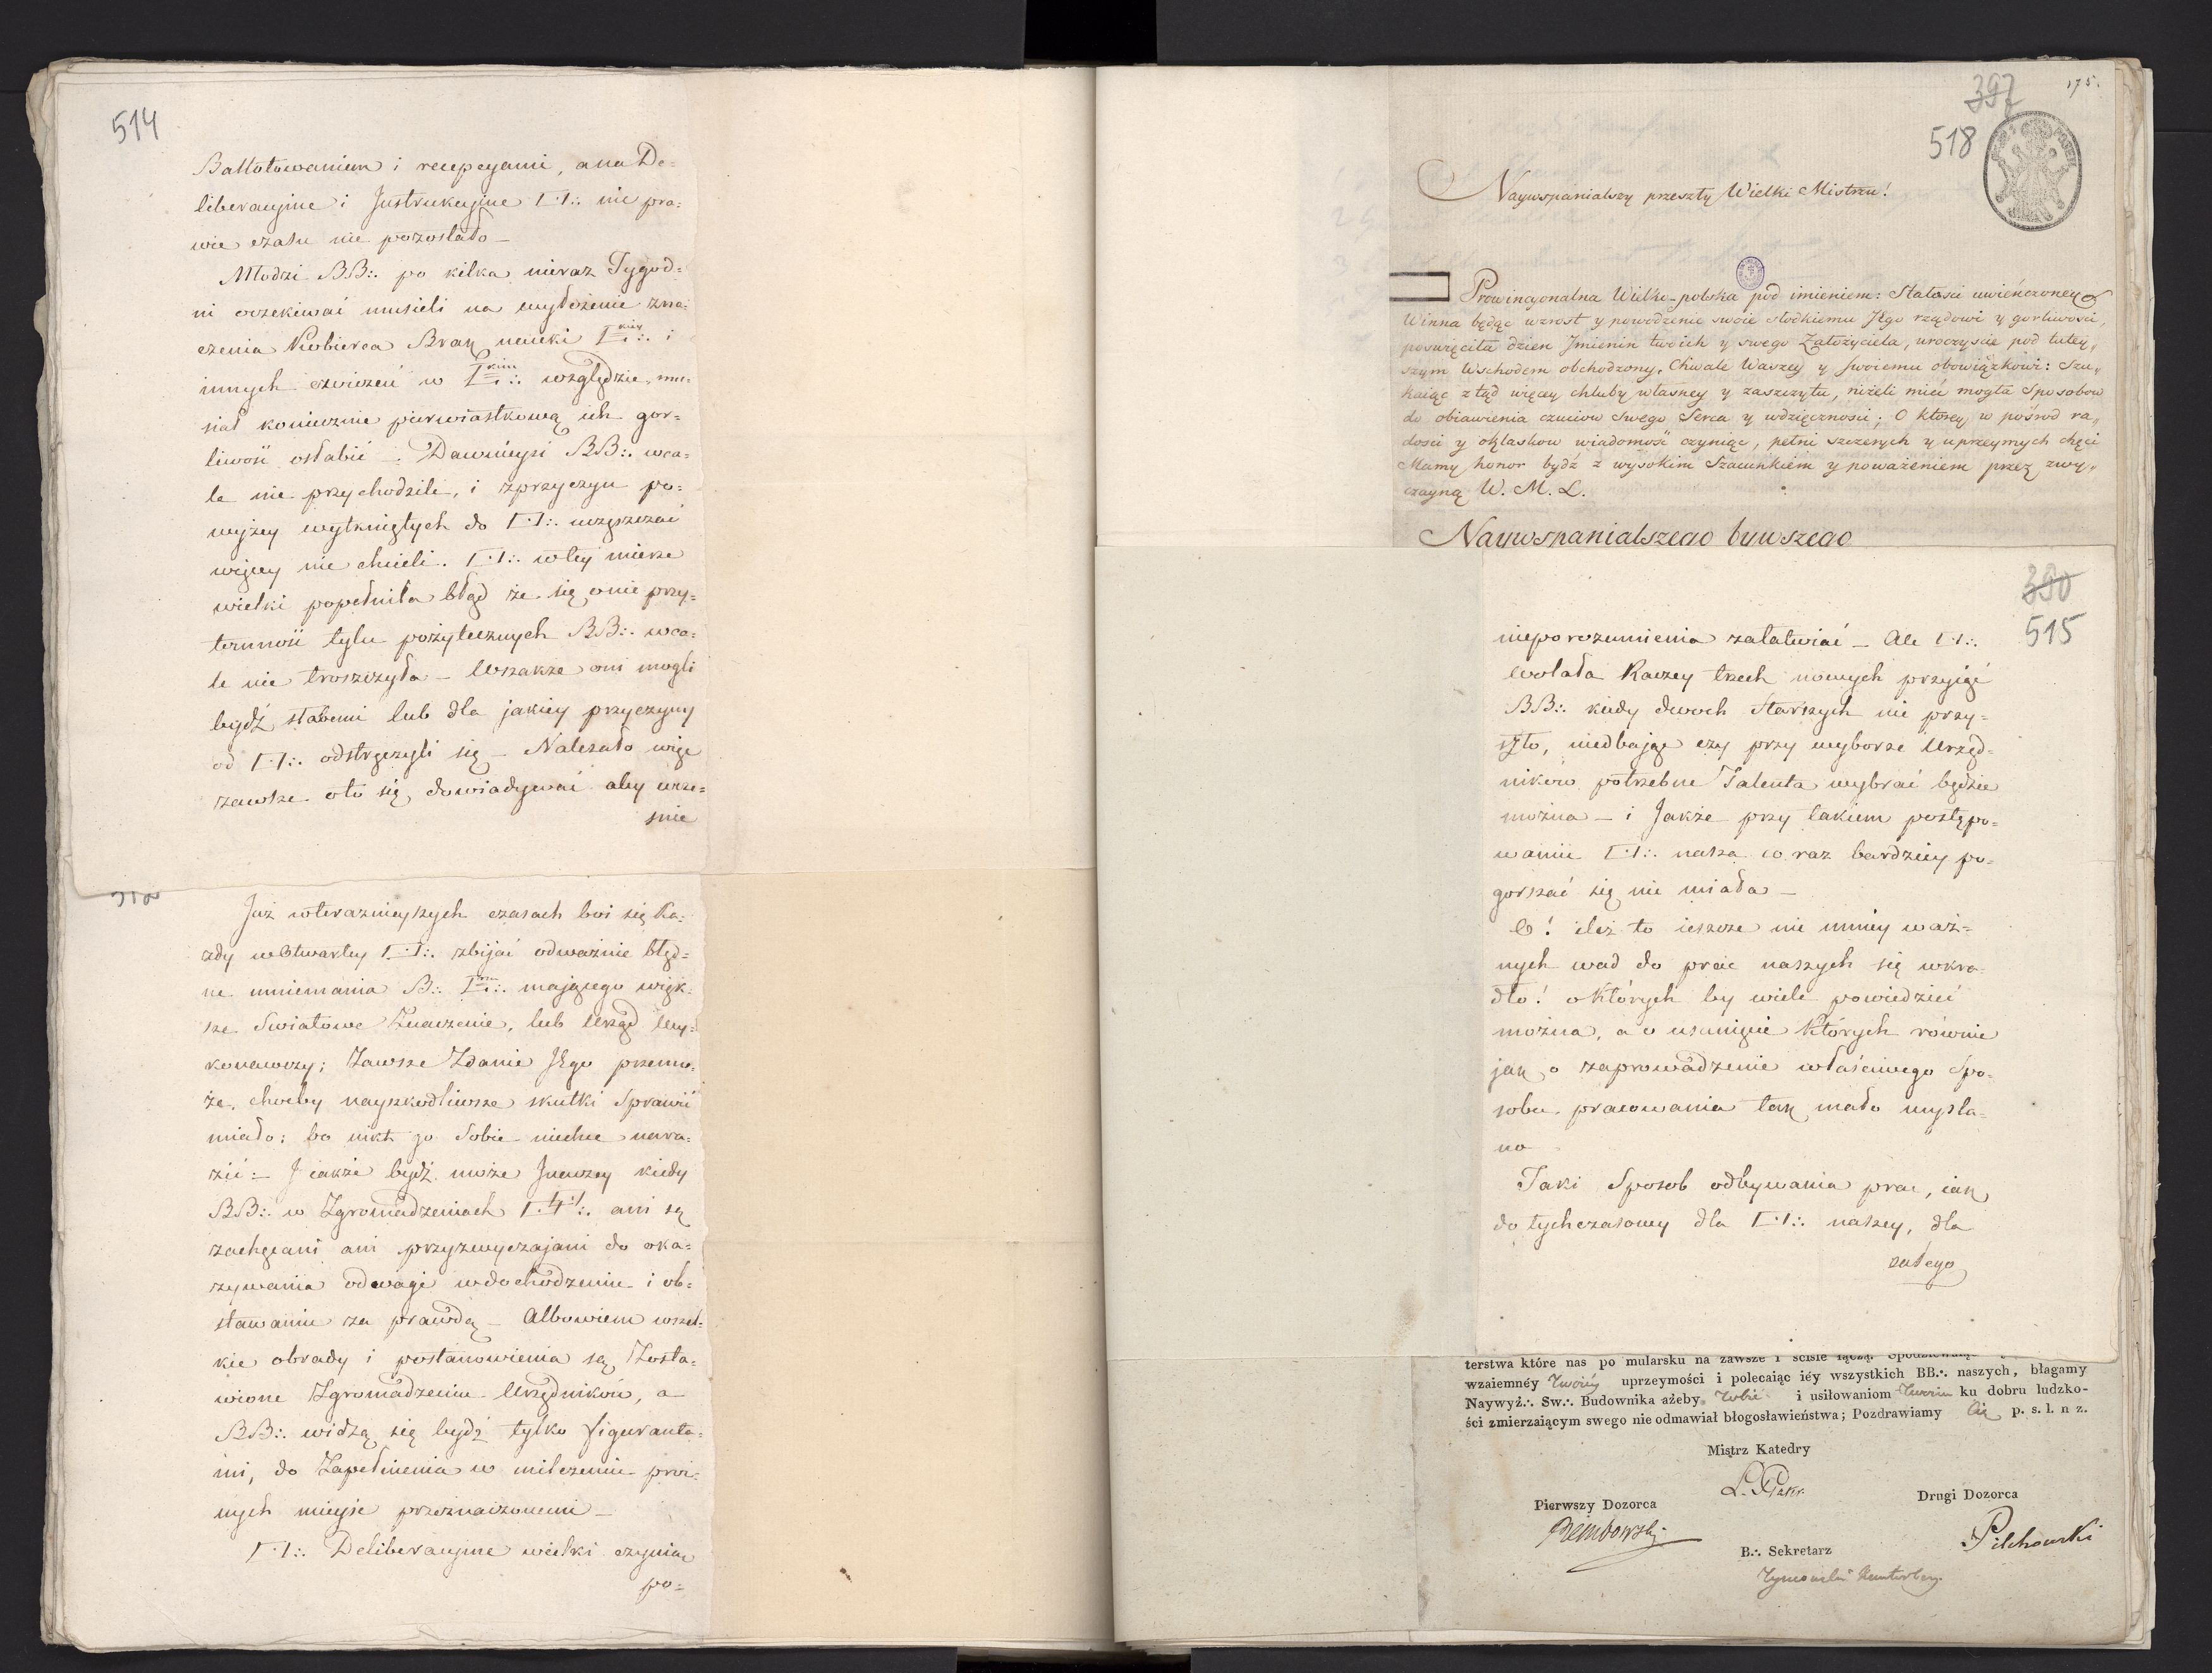 514
Ballotowaniem i recepcyami, a na De=
liberacyine i Instrukcyine [·]:. nie pra=
wie czasu nie pozostało —
Młodzi BB:. po kilka nieraz Tygod=
ni oczekiwać musieli na wyłożenie zna=
czenia Kobierca Brak nauki i
innych ćwiczeń w względzie, mu=
siał koniecznie pierwiastkową ich gor=
liwość osłabić —. Dawnieysi BB:. wca=
le nie przychodzili, i zprzyczyn po=
wyżey wytkniętych do [·]:. uczęszczać
więcey nie chcieli. [·]:. wtey mierze
wielki popełniła błąd że się o nie przy=
tomność tylu pożytecznych BB:. wca=
le nie troszczyła — Wszakże oni mogli
bydź słabemi lub dla jakiey przyczyny
od [·]:. odstręczyli się — Należało więc
zawsze oto się dowiadywać aby wcze=
snie
Już wteraznieyszych czasach boi się Ka=
żdy wOtwartey [·]:. zbijać odważnie błęd=
ne mniemania B:. mającego więk=
sze Swiatowe Znaczenie, lub Urząd Wy=
konawczy; Zawsze Zdanie Jego przemo=
że, choćby nayszkodliwsze skutki Sprawić
miało; bo nikt go Sobie niechce nara=
zić :— I iakże bydź może Inaczey kiedy
BB:. w Zgromadzeniach ani są
zachęcani ani przyzwyczajani do oka=
zywania odwagi wdochodzeniu i ob=
stawaniu za prawdą — Albowiem wszel=
kie obrady i postanowienia są Zosta=
wione Zgromadzeniu Urzędników, a
BB:. widzą się bydź tylko figuranta=
mi, do Zapełnienia w milczeniu próż=
nych mieysc przeznaczonemi —
[·]:. Deliberacyine wielki czyniąc
po=
397
175.
518
Naywspanialszy przeszły Wielki Mistrzu!
Prowincyonalna Wielko-polska pod imieniem: Stałości uwieńczoney
Winna będąc wzrost y powodzenie swoie słodkiemu Jego rządowi y gorliwości,
poswięciła dzien Jmienin twoich y swego Założyciela, uroczyscie pod tutey,,
szym Wschodem obchodzony. Chwale Waszey y swoiemu obowiązkowi: Szu,,
kaiąc ztąd więcey chluby własney y zaszczytu, niżeli mieć mogła Sposobow
do obiawienia czuciow swego Serca y wdzięczności; O ktorey w pośrod ra,,
dosci y oklaskow wiadomość czyniąc, pełni szczerych y uprzeymych chęci
Mamy honor bydź z wysokim Szacunkiem y poważeniem przez zwy,,
czayną W. M. L.
Naywspanialszego bywszego
390
515
nieporozumienia załatwiać — Ale [·]:.
wolała Raczey trzech nowych przyiąć
BB:. kiedy dwoch Starszych nie przy=
szło, niedbając czy przy wyborze Urzęd=
ników potrzebne Talenta wybrać będzie
można — i Jakże przy takiem postępo=
waniu [·]:. nasza co raz bardziey po=
gorszać się nie miała —
O! ileż to ieszcze nie mniey waż=
nych wad do prac naszych się wkra=
dło! oKtórych by wiele powiedzieć
można, a o usunięcie Których równie
jak o zaprowadzenie właściwego Spo=
sobu pracowania tak mało mysla=
no
Taki Sposob odbywania prac, iak
dotychczasowy dla [·]:. naszey, dla
całego
terstwa które nas po mularsku na zawsze i ściśle łączą.
wzaiemnéy Twoiéy uprzeymości i polecaiąc iéy wszystkich BB.·. naszych, błagamy
Naywyż.·. Sw.·. Budownika ażeby Tobie i usiłowaniom Twoim ku dobru ludzko-
ści zmierzaiącym swego nie odmawiał błogosławieństwa; Pozdrawiamy Cię p. s. l. n z.
Mistrz Katedry
Pierwszy Dozorca
Drugi Dozorca
Pilchowski
B.·. Sekretarz